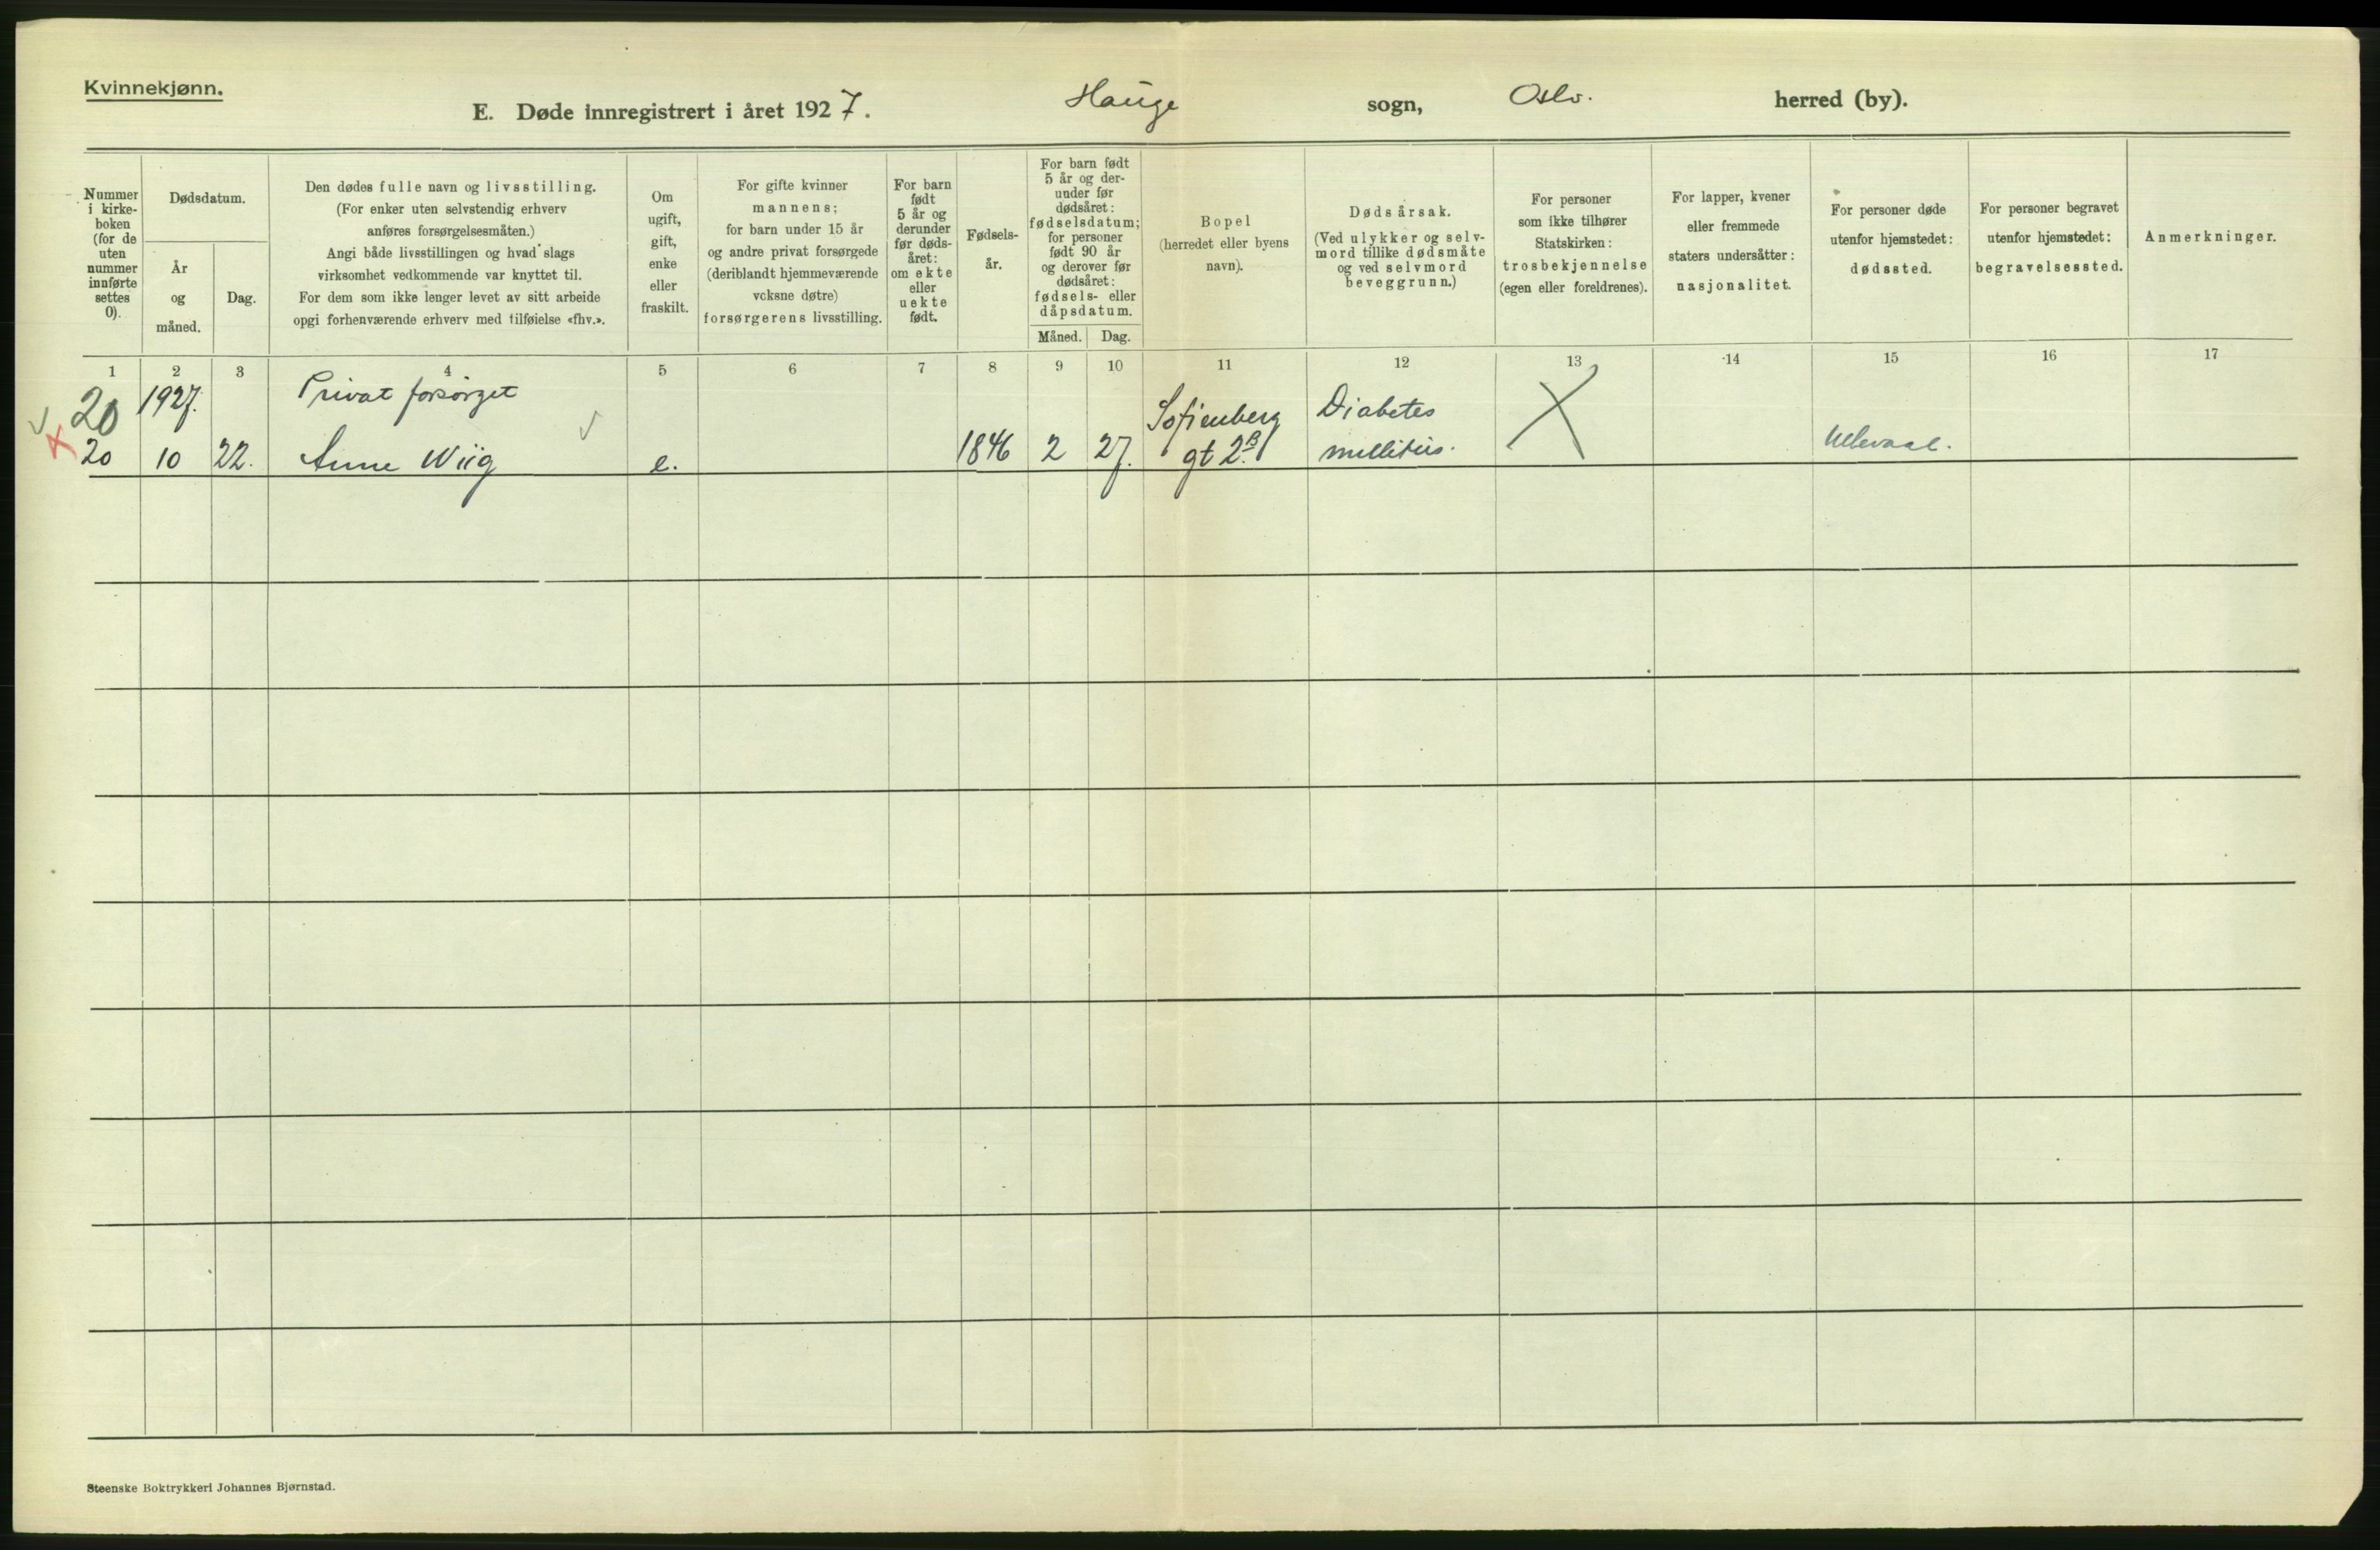 Kvinnekjønn.
E. Døde innregistrert i året 1927. Hauge sogn, Oslo. herred (by).
Nummer
i kirke-
boken
(for de
uten
nummer
innførte
settes
0).
Dødsdatum.
År
og
måned.
Dag.
Den dødes fulle navn og livsstilling.
(For enker uten selvstendig erhverv
anføres forsørgelsesmåten.)
Angi både livsstillingen og hvad slags
virksomhet vedkommende var knyttet til.
For dem som ikke lenger levet av sitt arbeide
opgi forhenværende erhverv med tilføielse «fhv.».
Om
ugift,
gift,
enke
eller
fraskilt.
For gifte kvinner
mannens;
for barn under 15 år
og andre privat forsørgede
(deriblandt hjemmeværende
voksne døtre)
forsørgerens livsstilling.
For barn
født
5 år og
derunder
før døds-
året:
om ekte
eller
uekte
født.
Fødsels-
år.
For barn født
5 år og der-
under før
dødsåret:
fødselsdatum;
for personer
født 90 år
og derover før
dødsåret:
fødsels- eller
dåpsdatum.
Måned. Dag.
Bopel
(herredet eller byens
navn).
Dødsårsak.
(Ved ulykker og selv-
mord tillike dødsmåte
og ved selvmord
beveggrunn.)
For personer
som ikke tilhører
Statskirken:
trosbekjennelse
(egen eller foreldrenes).
For lapper, kvener
eller fremmede
staters undersåtter:
nasjonalitet.
For personer døde
utenfor hjemstedet:
dødssted.
For personer begravet
utenfor hjemstedet:
begravelsessted.
Anmerkninger.
1 2 3 4 5 6 7 8 9 10 11 12 13 14 15 16 17
20 1927. Privat forsørget Sofienberg Diabetes
20 10 22. Anne Wiig e. 1846 2 27. gt 2B mellitus. Ullevaal.
Steenske Boktrykkeri Johannes Bjørnstad.